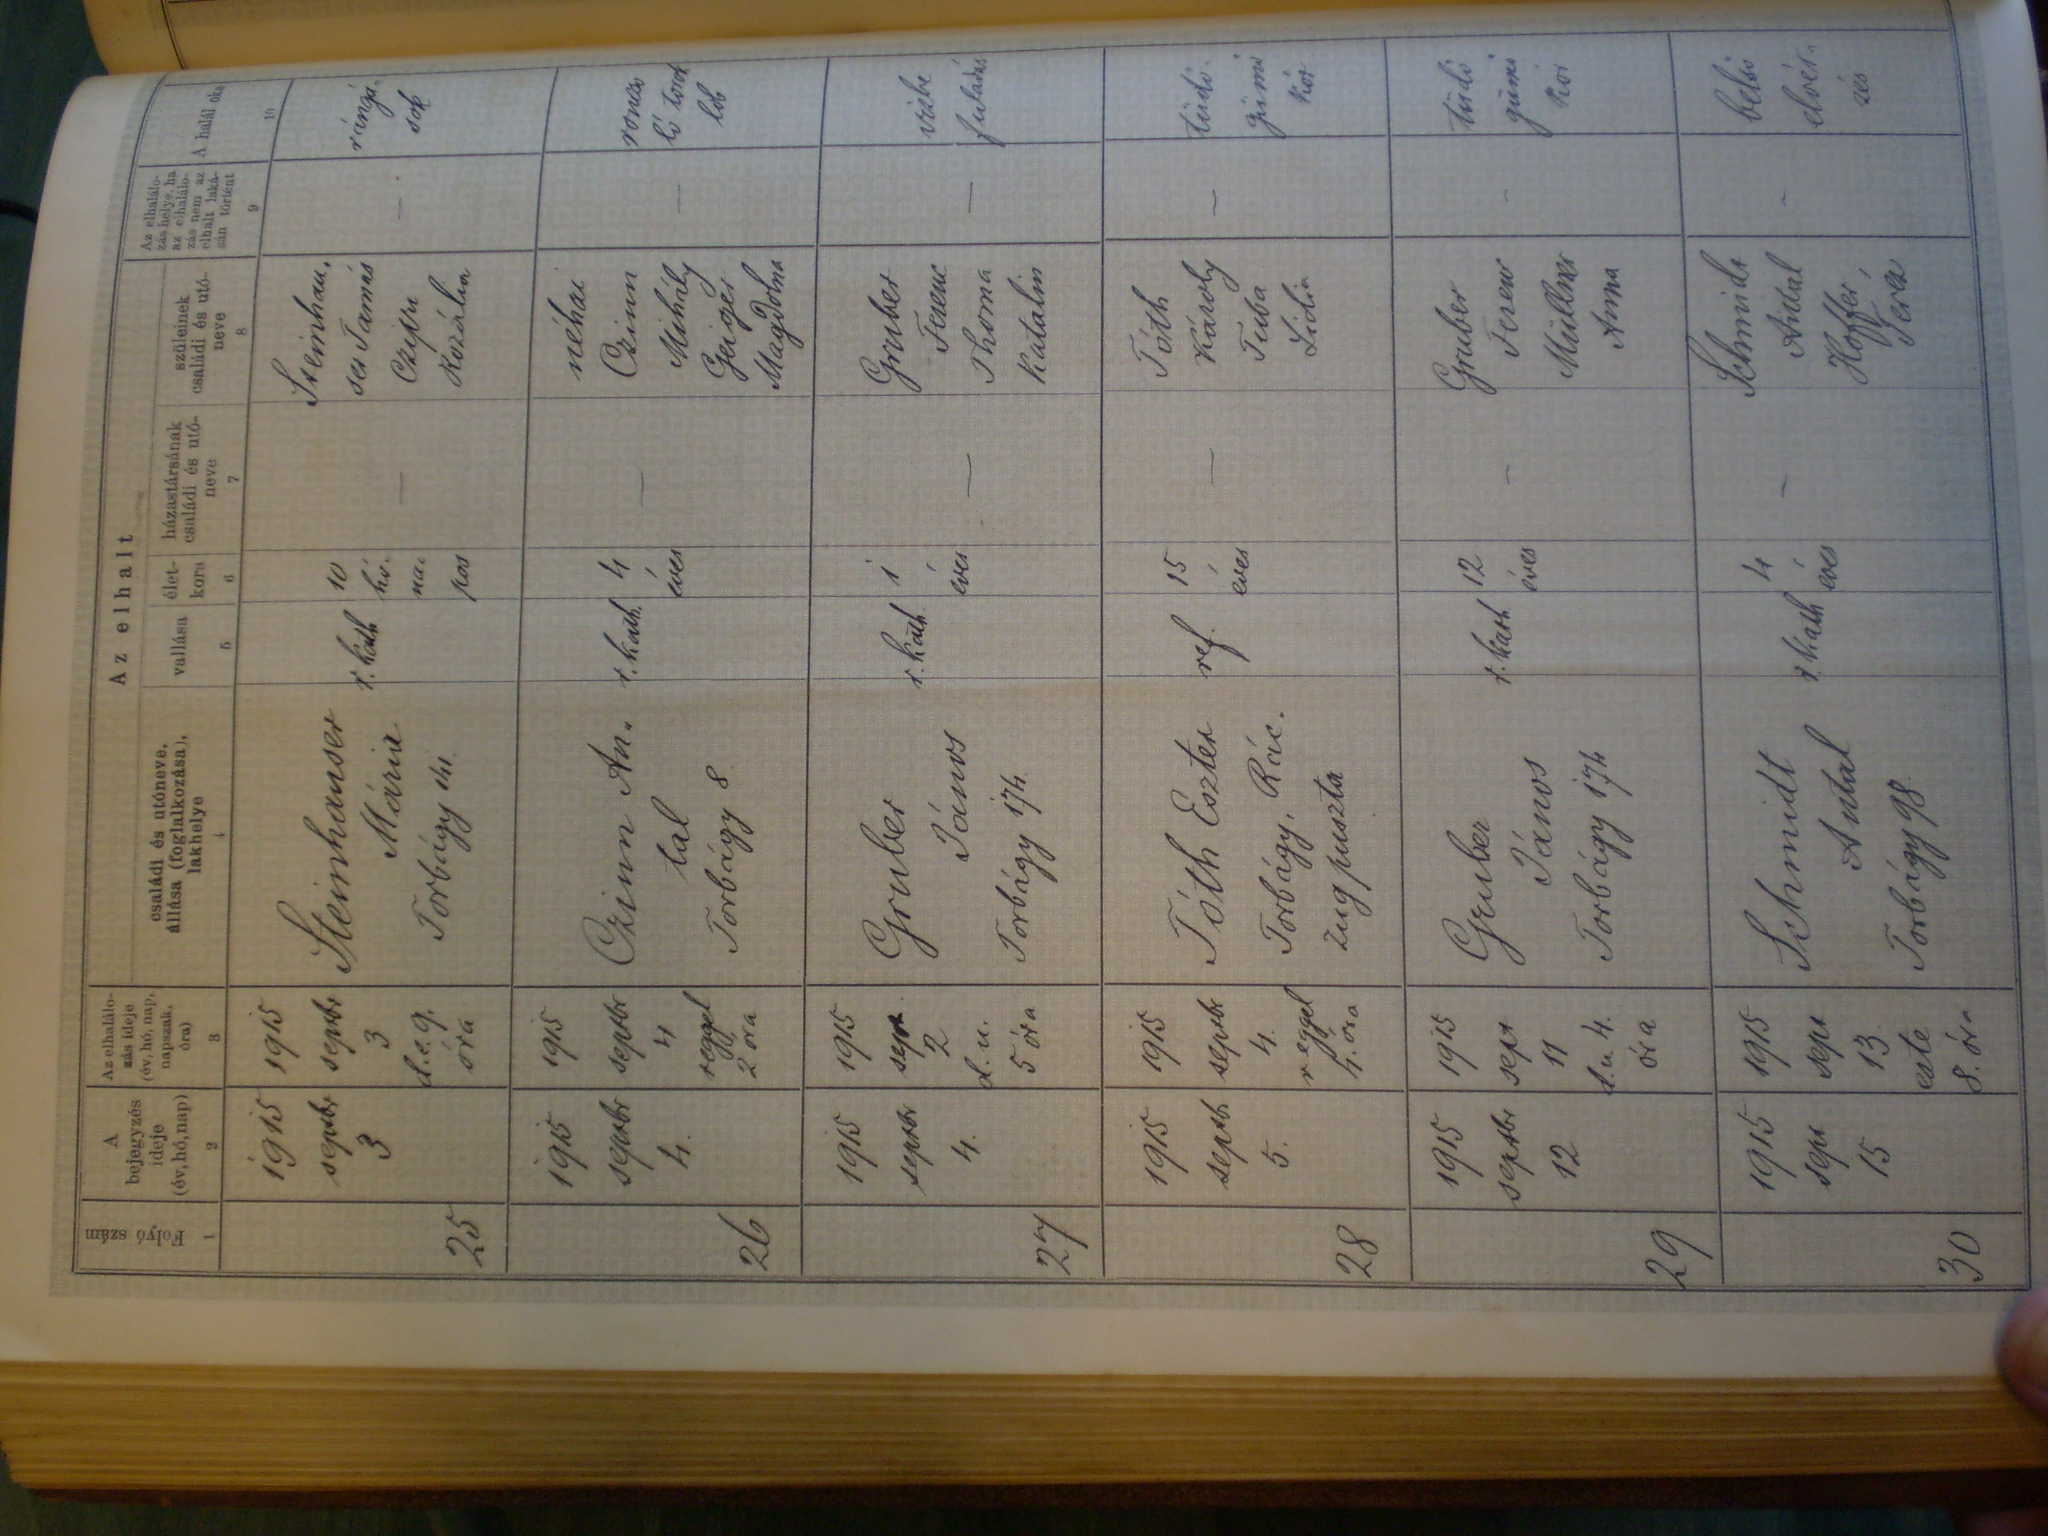 Az elhalt
Folyó szám
A
bejegyzés
ideje
(év, hó, nap)
Az elhalálo-
zás ideje
(év, hó, nap,
napszak,
óra)
családi és utóneve,
állása (foglalkozása),
lakhelye
vallása
élet-
kora
házastársának
családi és utó-
neve
szüleinek
családi és utó-
neve
Az elhalálo-
zás helye, ha
az elhalálo-
zás nem az
elhalt laká-
sán történt
A halál oka
1
2
3
4
5
6
7
8
9
10
25
1915
septbr
3
1915
septbr
3
d. e. 9.
óra
Steinhauser
Mária
Torbágy 141.
r. kath.
10
hó-
na-
pos
—
Steinhau-
ser Tamás
Czipu
Rozália
—
rángá-
sok
26
1915
septbr
4.
1915
septbr
4
reggel
2 óra
Czinn An-
tal
Torbágy 8.
r. kath.
4
éves
—
néhai
Czinn
Mihály
Geiger
Magdolna
—
roncso
ló torok
lob
27
1915
septbr
4.
1915
sept.
2
d. u.
5 óra
Gruber
János
Torbágy 174.
r. kath.
1
éves
—
Gruber
Ferenc
Thoma
Katalin
—
vizbe
fuladás
28
1915
septbr
5.
1915
septbr
4.
reggel
4. óra
Tóth Eszter
Torbágy, Rác-
zug puszta
ref.
15
éves
—
Tóth
Károly
Tuba
Lidia
—
tüdő-
gümő
kór
29
1915
septbr
12
1915
sept
11
d. u 4.
óra
Gruber
János
Torbágy 174
r. kath
12
éves
—
Gruber
Ferenc
Müller
Anna
—
tüdő
gümő
kór
30
1915
sept
15
1915
sept
13.
este
8. óra
Schmidt
Antal
Torbágy 98.
r. kath
4
éves
—
Schmidt
Antal
Hoffer
Teréz
—
belső
elvér-
zés